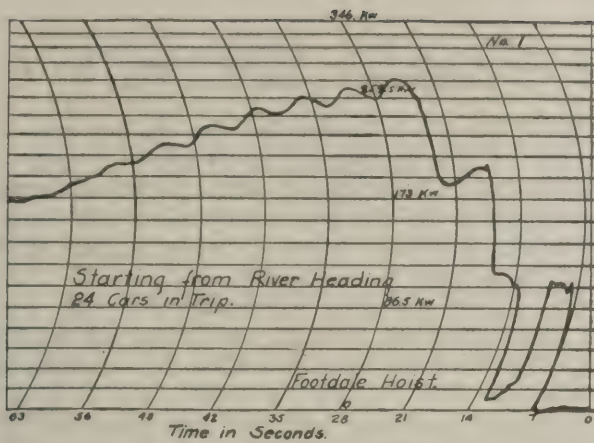 346. Kw
No. 1
173 Kw
Starting from River Heading
24 Cars in Trip.
86.5 Kw
Footdale Hoist.
63 56 49 42 35 28 21 14 7 0
Time in Seconds.